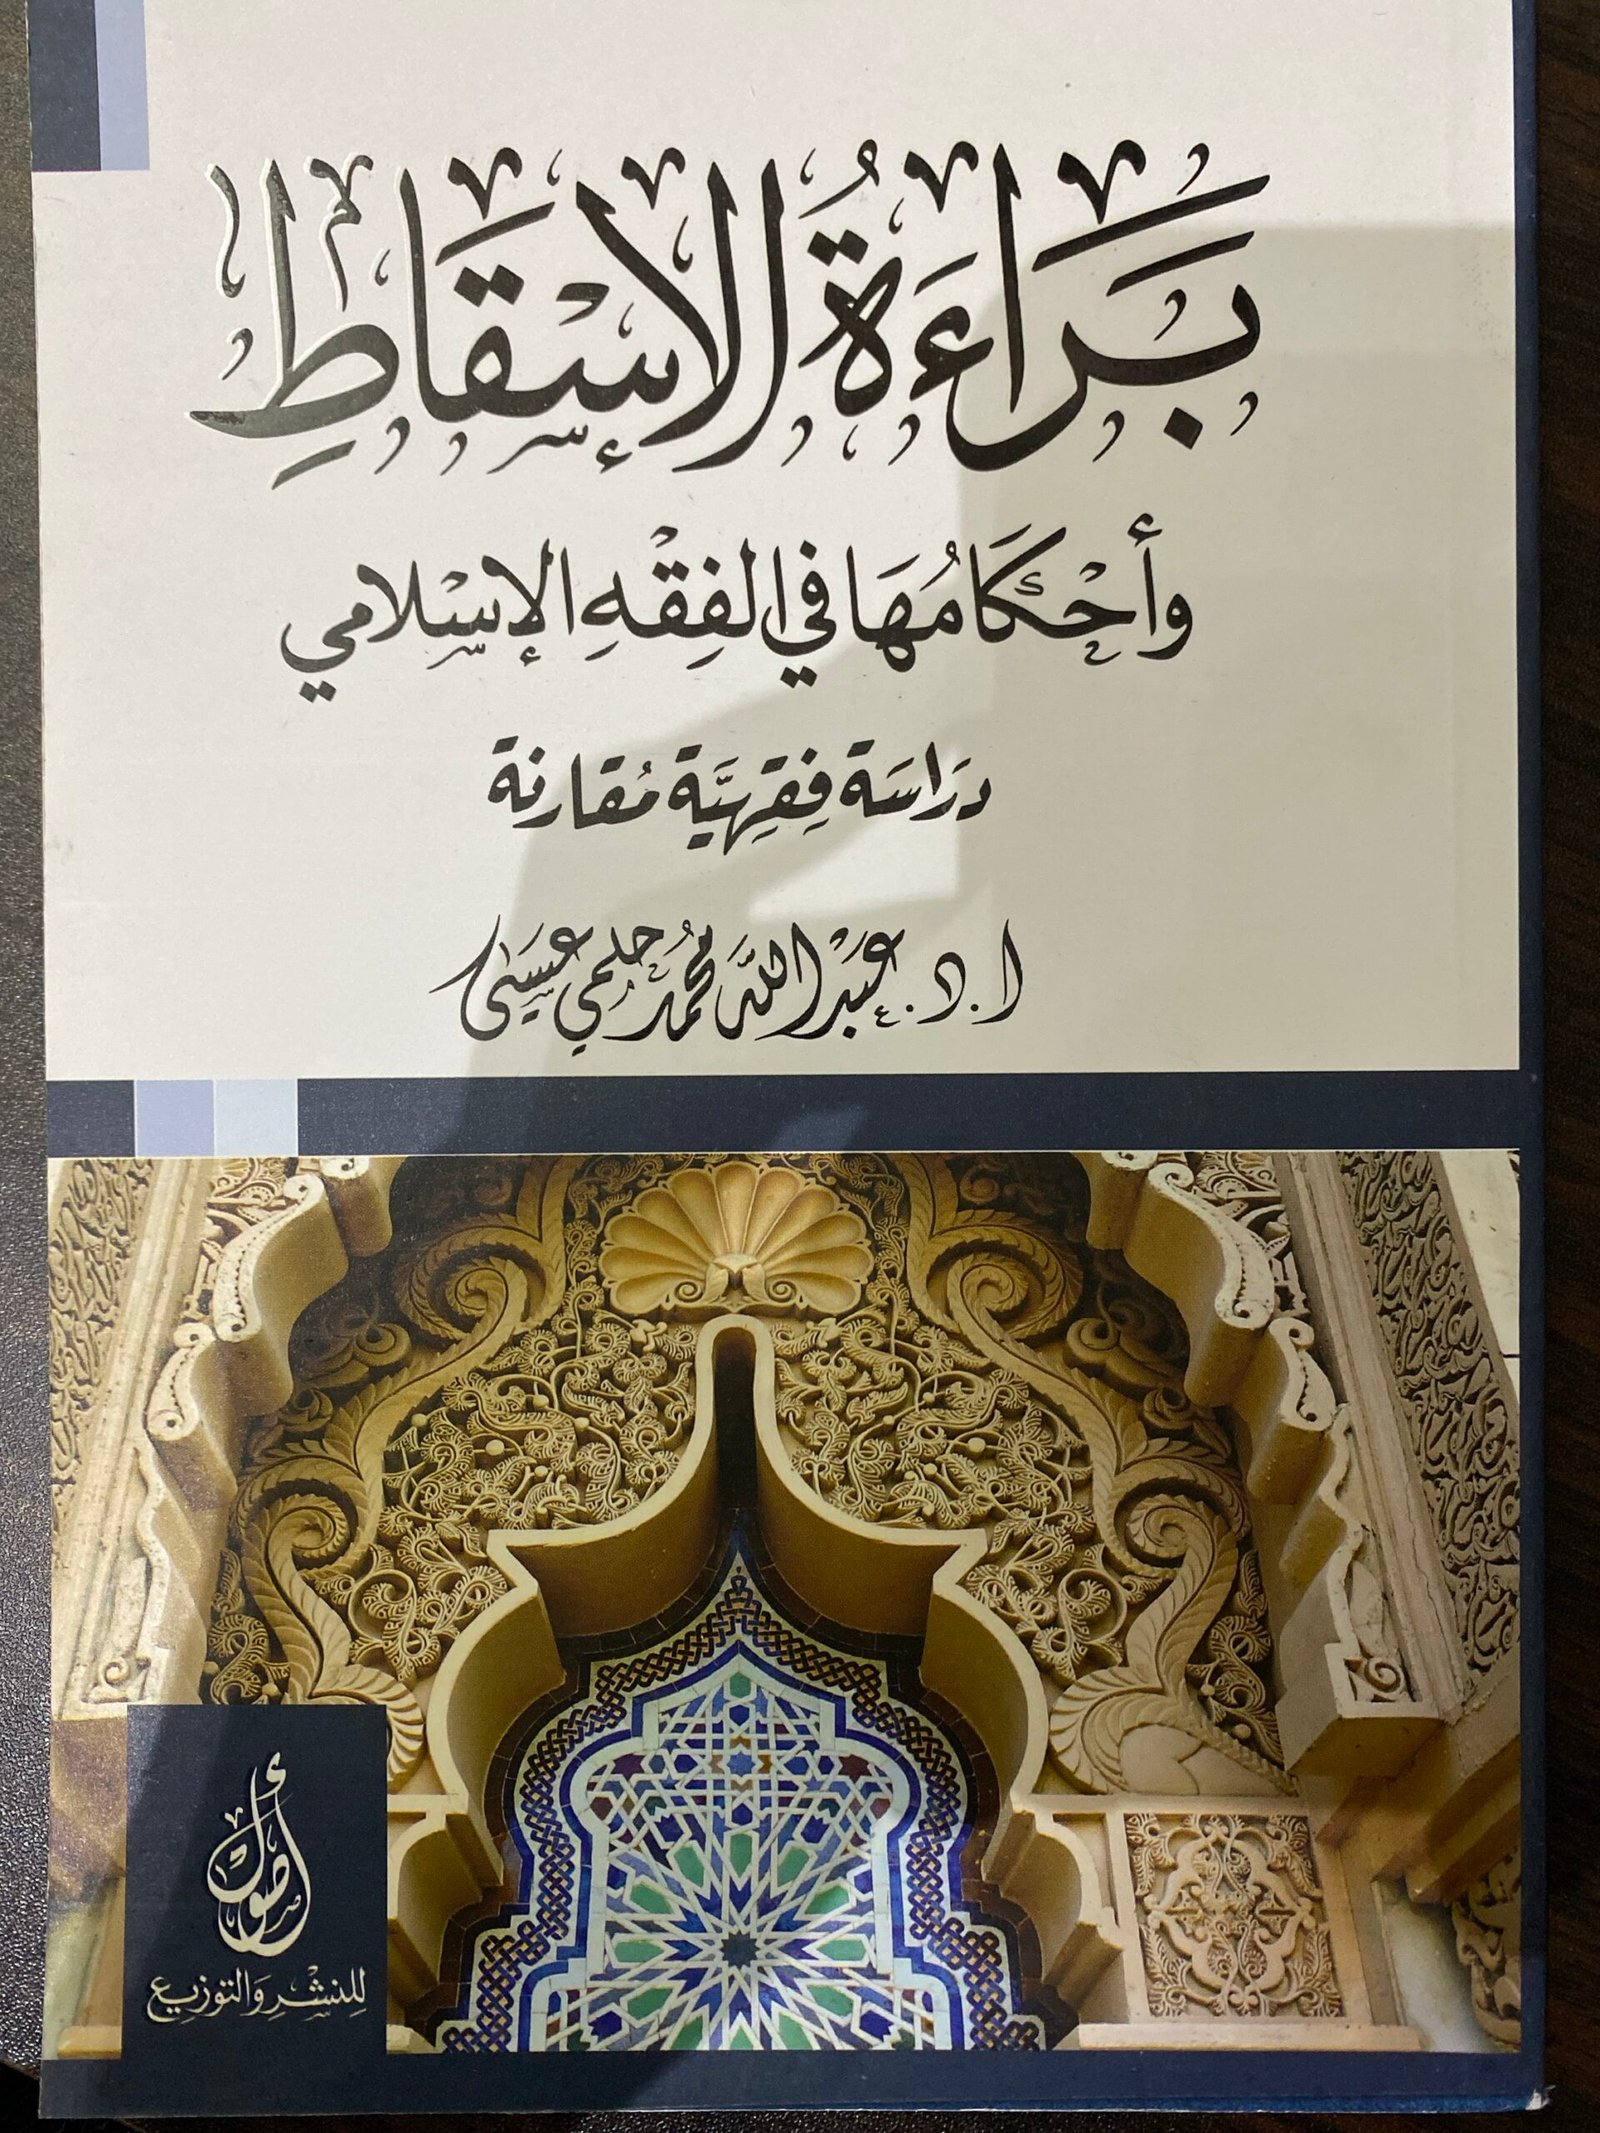 بَرَاءَةُ الإِسْقَاطِ
وأَحْكَامُهَا في الفِقْهِ الإِسْلامي
دِرَاسَة فِقهِيَّة مُقارنة
ا. د. عَبْد اللَّه مُحمَّد حلمي عيسَى
أصول
للِنشْرِ وَالتوزيع